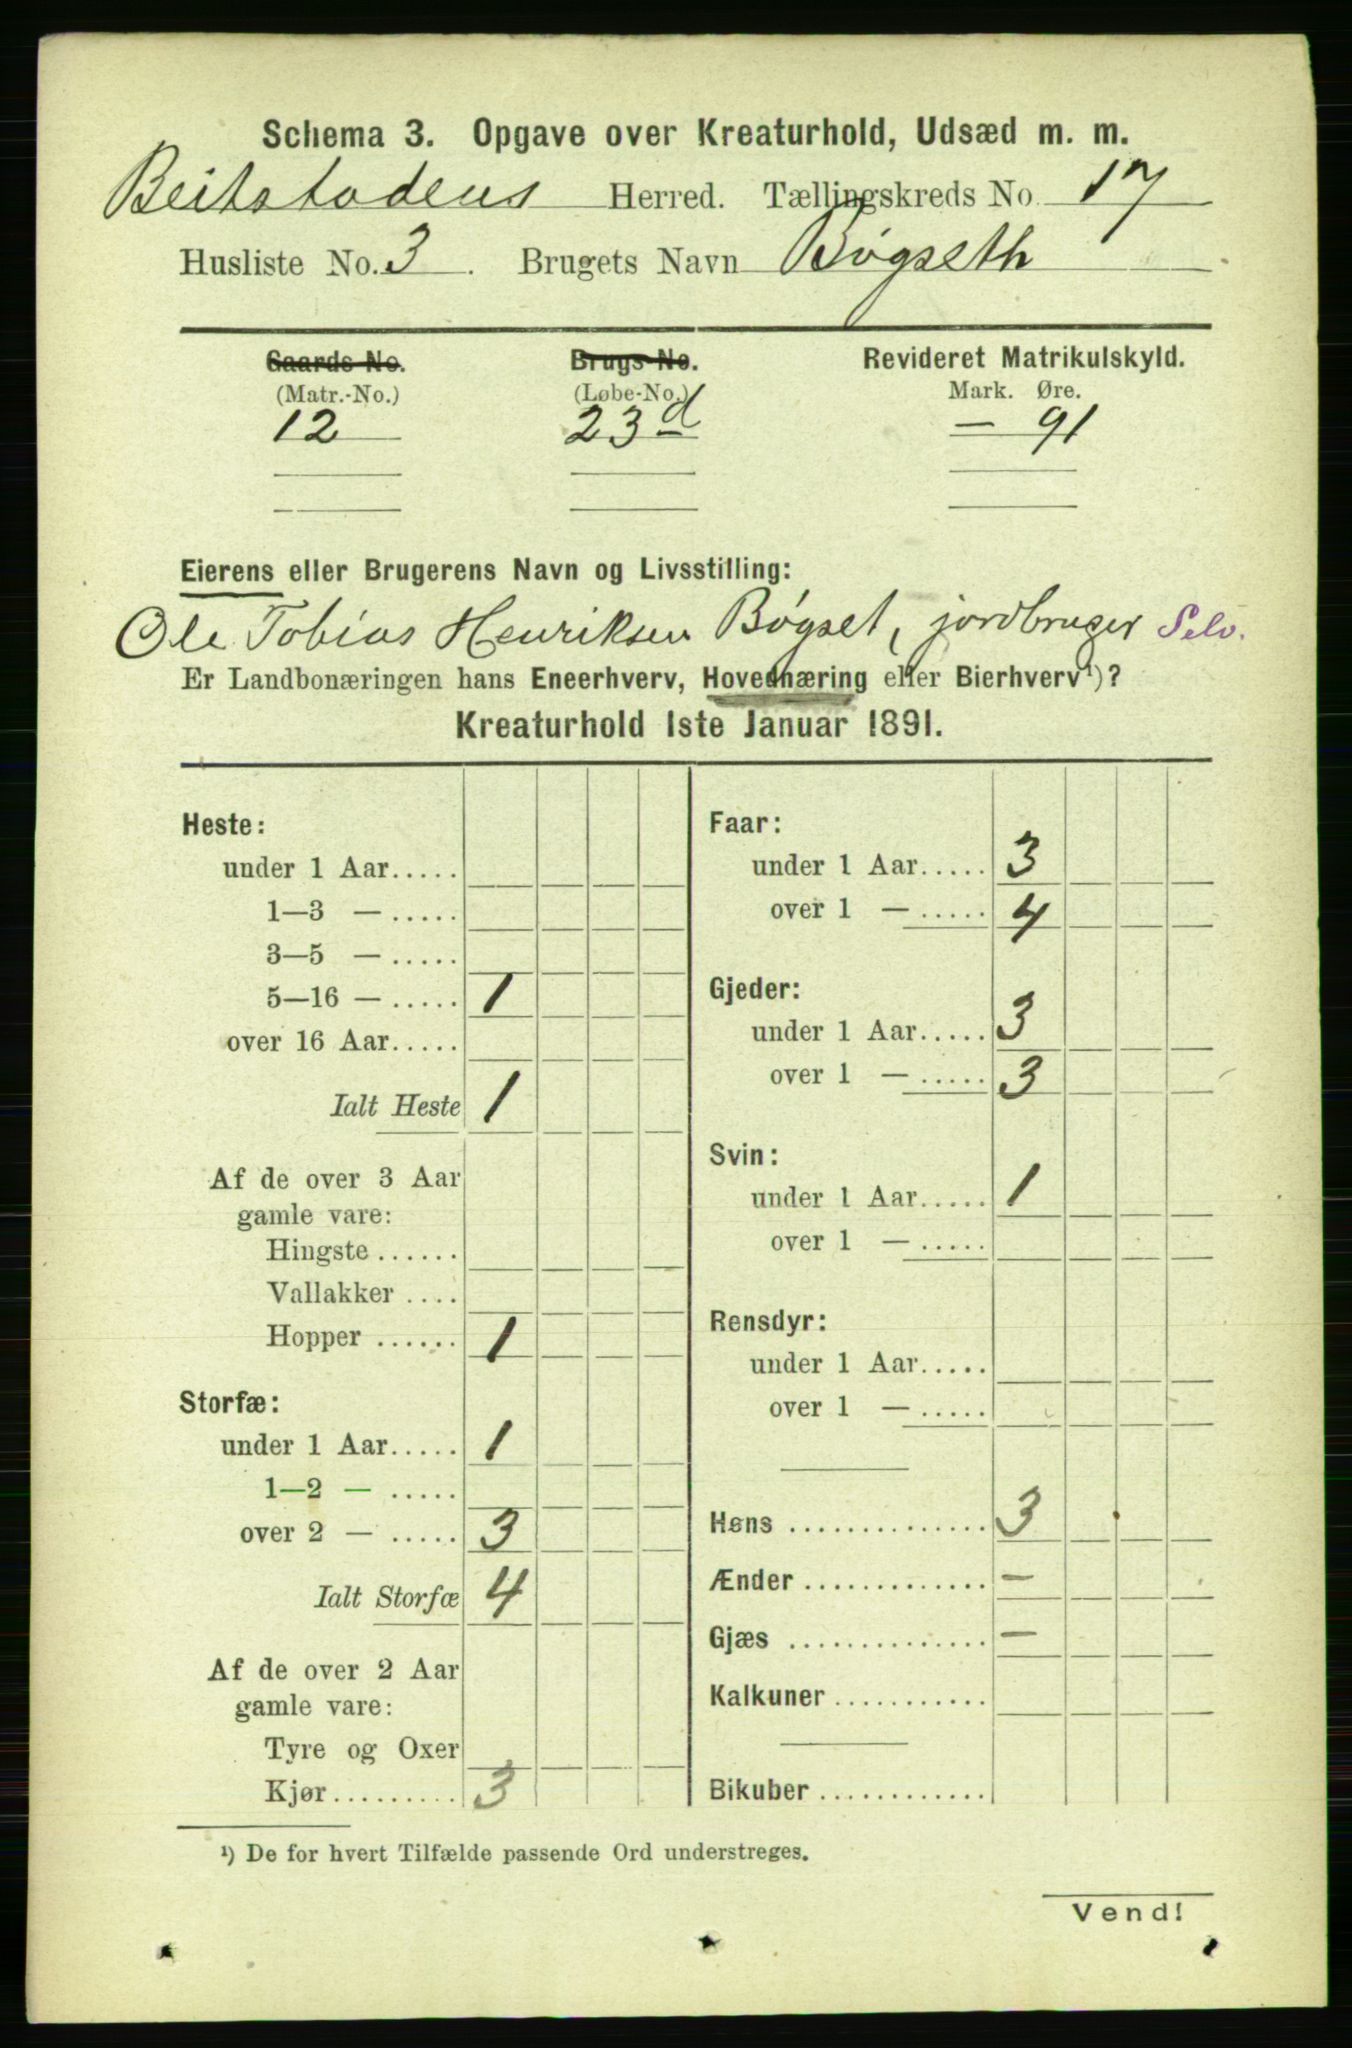 Schema 3. Opgave over Kreaturhold, Udsæd m. m.
Beitstadens Herred. Tællingskreds No. 17
Husliste No. 3. Brugets Navn Bøgseth
Gaards-No. Brugs-No. Revideret Matrikulskyld.
(Matr.-No.) (Løbe-No.) Mark. Øre.
12 23d — 91
Eierens eller Brugerens Navn og Livsstilling:
Ole Tobias Henriksen Bøgset, jordbruger Selv.
Er Landbonæringen hans Eneerhverv, Hovednæring eller Bierhverv¹)?
Kreaturhold 1ste Januar 1891.
Heste:
under 1 Aar.....
1—3 — .....
3—5 — .....
5—16 — ..... 1
over 16 Aar.....
Ialt Heste 1
Af de over 3 Aar
gamle vare:
Hingste ......
Vallakker ....
Hopper ...... 1
Storfæ:
under 1 Aar..... 1
1—2 — .....
over 2 — ..... 3
Ialt Storfæ 4
Af de over 2 Aar
gamle vare:
Tyre og Oxer
Kjør......... 3
Faar:
under 1 Aar..... 3
over 1 — ...... 4
Gjeder:
under 1 Aar..... 3
over 1 — ...... 3
Svin:
under 1 Aar..... 1
over 1 — .....
Rensdyr:
under 1 Aar.....
over 1 — .....
Høns .............. 3
Ænder ............. —
Gjæs .............. —
Kalkuner ...........
Bikuber ............
¹) De for hvert Tilfælde passende Ord understreges.
Vend!